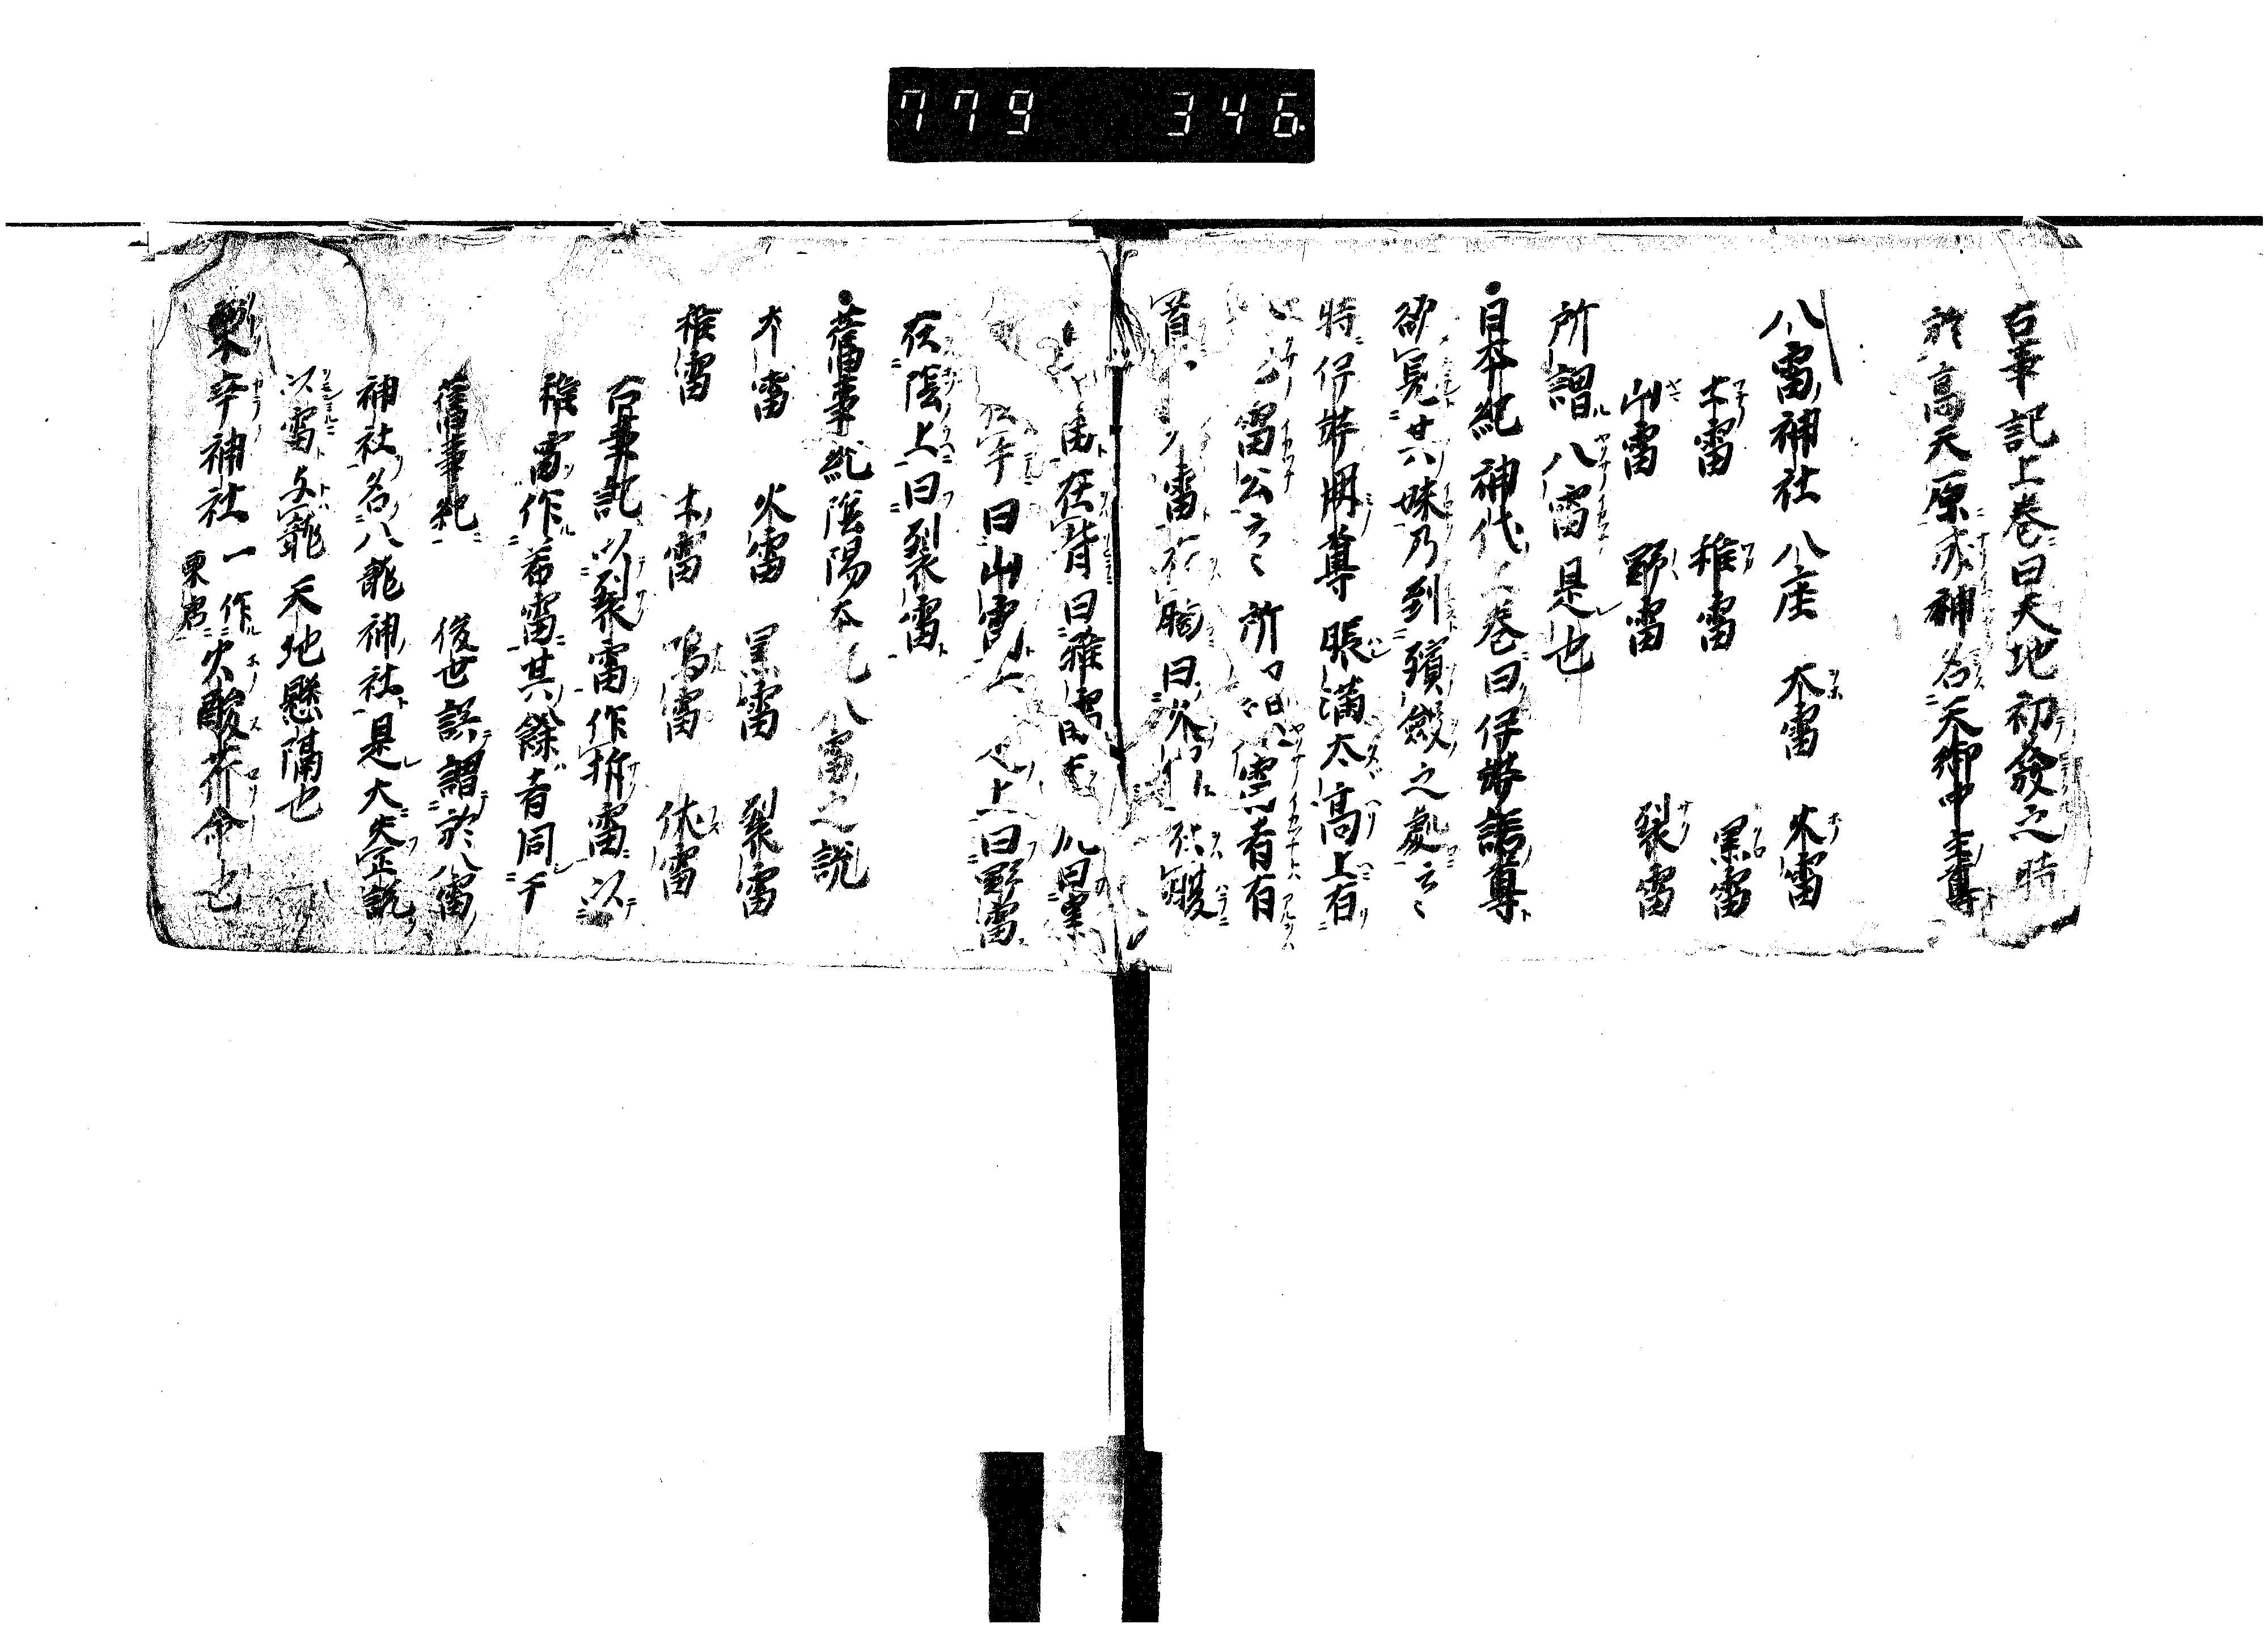 779 346
古事記上巻曰天地初發之時
於高天原成神名天御中主尊
八雷神社八座 大雷 火雷
土雷 稚雷 黒雷
山雷 野雷 裂雷
所謂八雷是也
日本紀神代上巻曰伊弉諾尊
欲見其妹乃到殯斂之處云々
時伊弉冊尊脹満太高上有
雷公云々所謂八雷者有
首曰大雷在胸曰火雷在腹
在背曰稚雷 曰黒
在手曰山雷 上曰野雷
在陰上曰裂雷
舊事紀陰陽本紀八雷之説
大雷 火雷 黒雷 裂雷
稚雷 土雷 鳴雷 伏雷
古事記以裂雷作拆雷以
稚雷作若雷其餘者同于
舊事紀 後世誤謂於八雷
神社名八龍神社是大失正説
以雷与龍天地懸隔也
栗辛神社 一作栗君 火酸芹命也